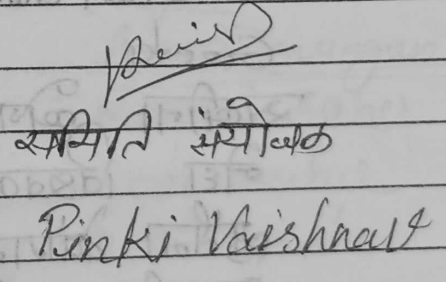 समिति संयोजक
Pinki Vaishnav